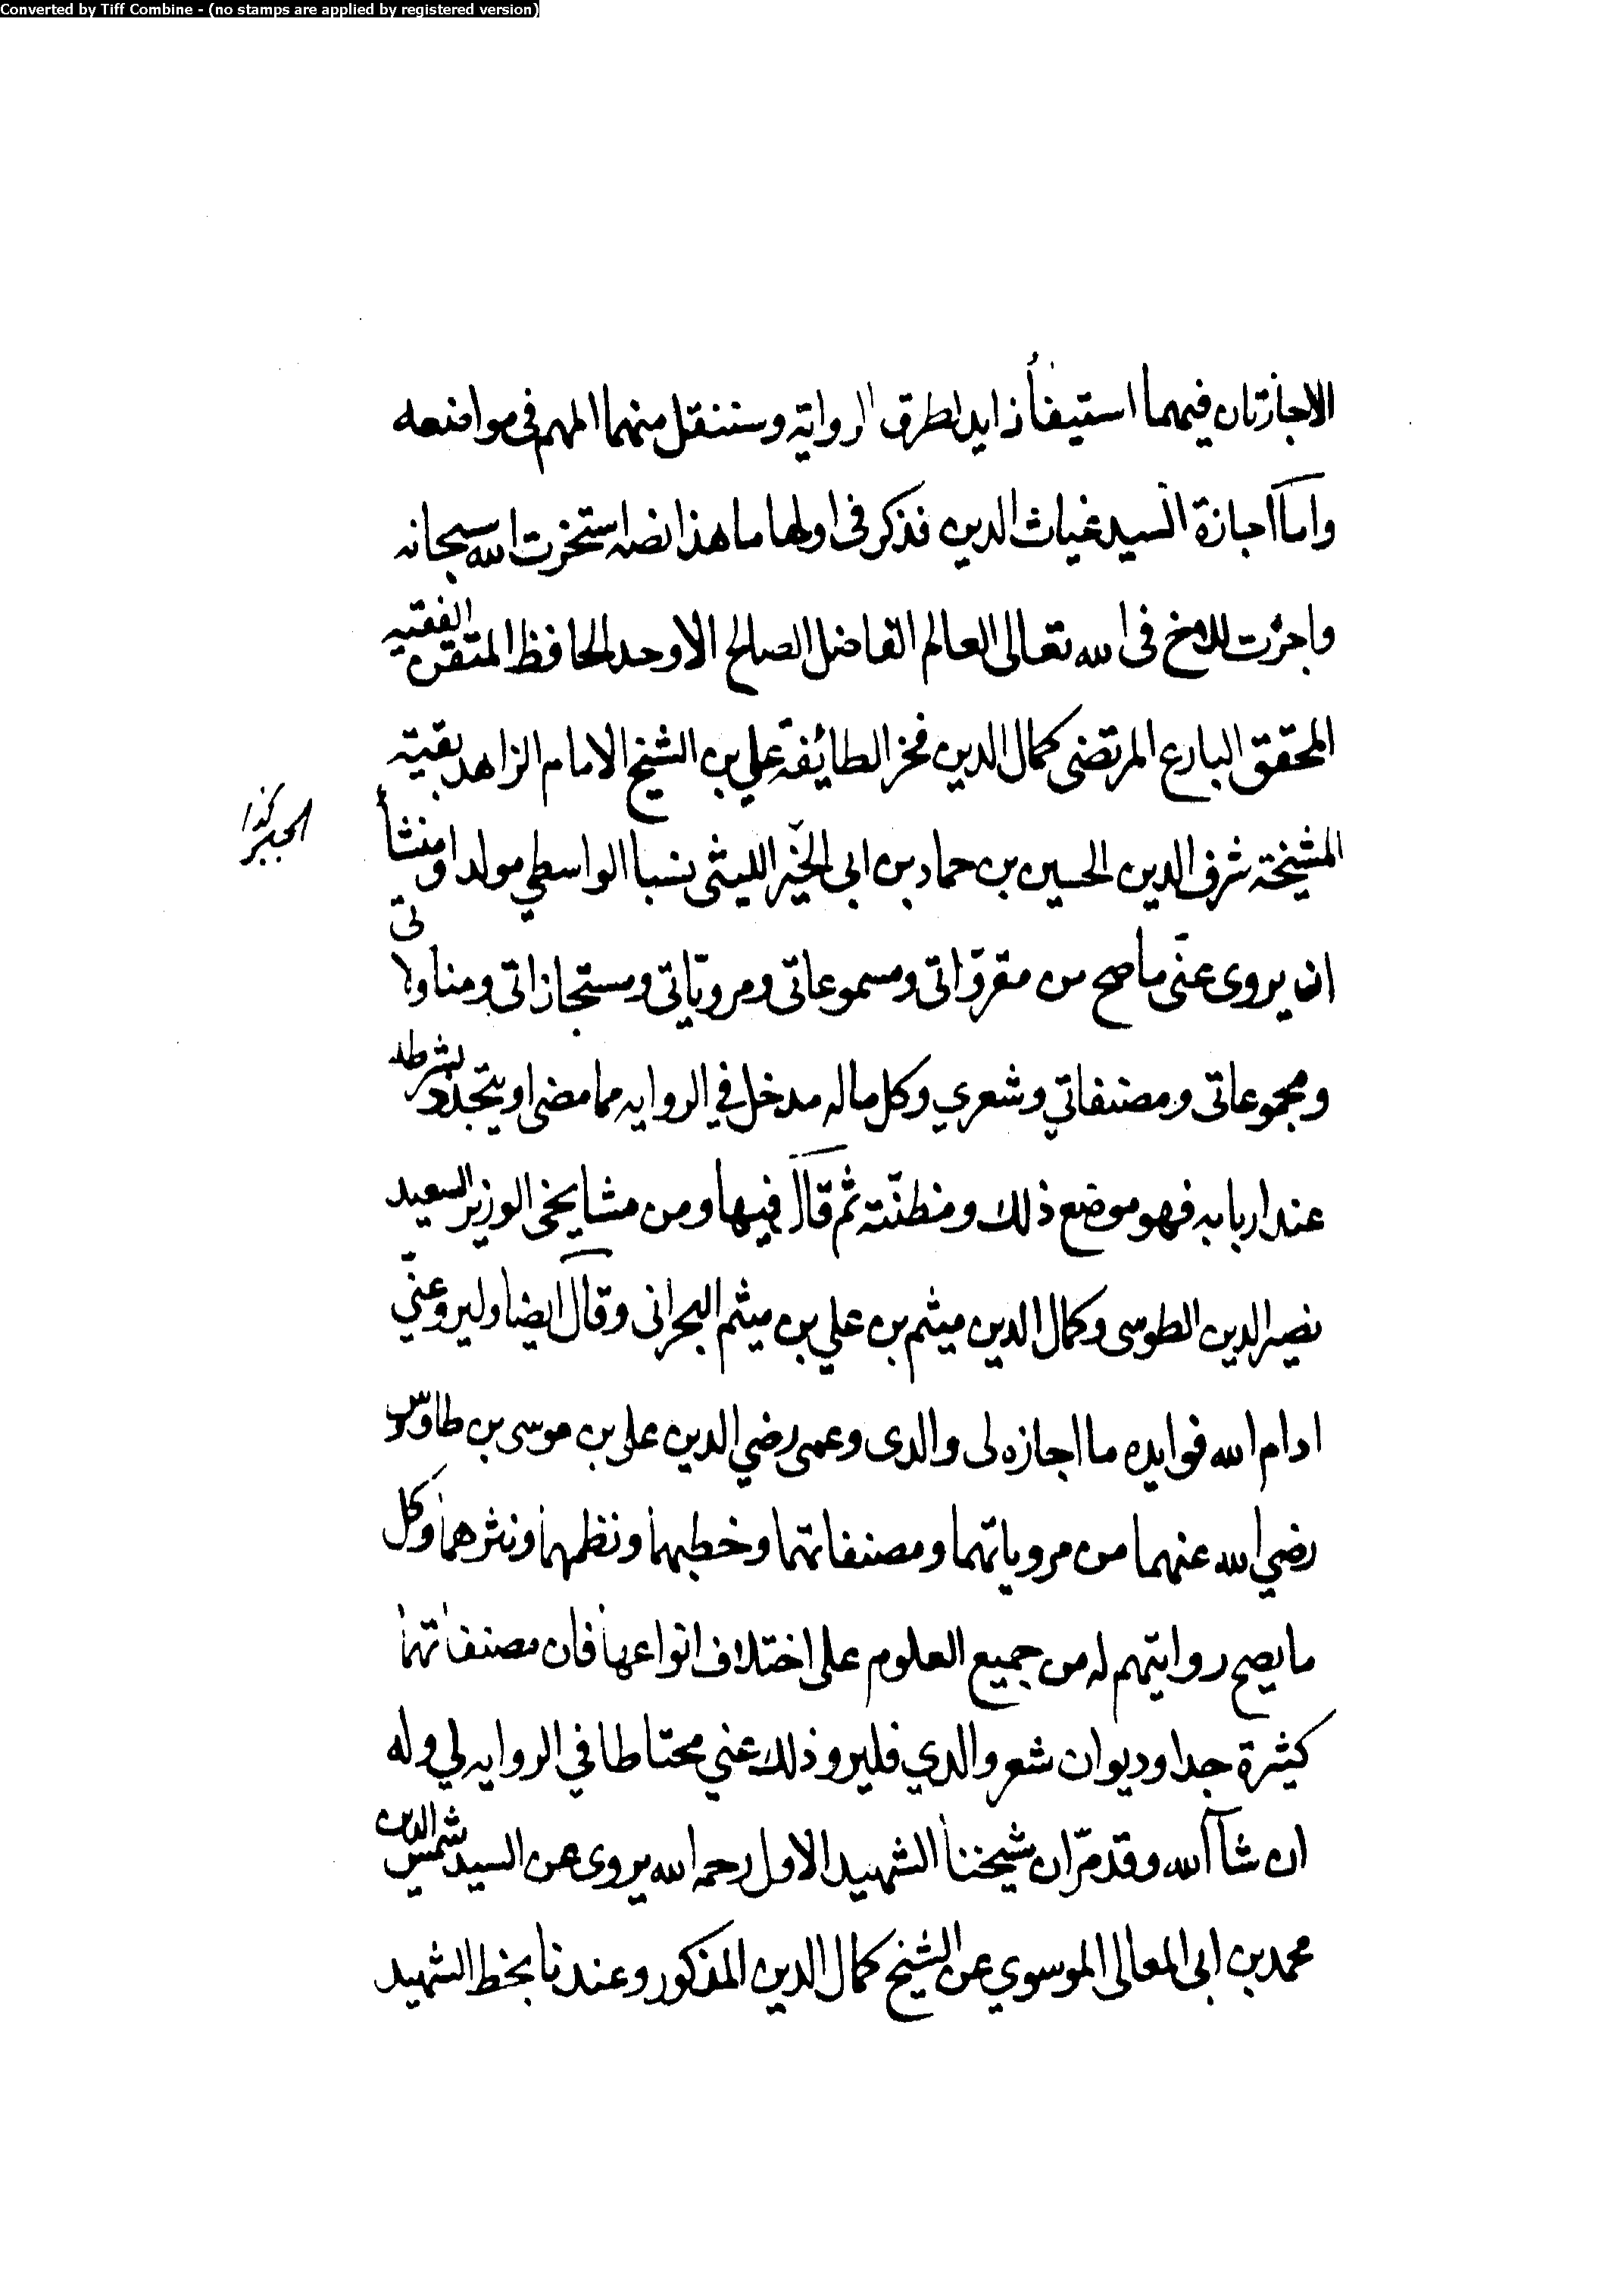 Converted by Tiff Combine - (no stamps are applied by registered version)
الاجازتان فيهما استيفأ زايد لطرق الرواية وسننقل منهما المهم فى مواضعه
واما اجازة السيد غياث الدين فذكر فى اولها ما هذا نصه استخرت الله سبحانه
واجزت للاخ فى الله تعالى العالم الفاضل الصالح الاوحد الحافظ المتقن الفقيه
المحقق البارع المرتضى كمال الدين فخر الطائفة علي بن الشيخ الامام الزاهد بقية
المشيخة شرف الدين الحسين بن حماد بن ابى الخير الليثى نسبا الواسطي مولدا ومنشأ
الخيبر كذا
ان يروى عنى ما صح من مقروّاتى ومسموعاتى ومرويّاتى ومستجازاتى ومناولاتى
ومجموعاتى ومصنفاتي وشعري وكل ماله مدخل في الروايه مما مضى او يتجدد بشرطه
عند اربابه فهو موضع ذلك ومظنّته ثم قال فيها ومن مشايخى الوزير السعيد
نصير الدين الطوسى وكمال الدين ميثم بن علي بن ميثم البحرانى وقال ايضا وليرو عنّي
ادام الله فوايده ما اجازه لى والدى وعمى رضي الدين على بن موسى بن طاوس
رضي الله عنهما من مروياتهما ومصنفاتهما وخطبهما ونظمهما ونثرهما وكل
ما يصح روايتهم له من جميع العلوم على اختلاف انواعها فان مصنفاتهما
كثيرة جدا وديوان شعر والدي فليرو ذلك عني محتاطا في الروايه لي وله
ان شآ الله وقد مرّ ان شيخنا الشهيد الاول رحمه الله يروى عن السيد شمس الدين
محمد بن ابى المعالى الموسوي عن الشيخ كمال الدين المذكور وعندنا بخط الشهيد